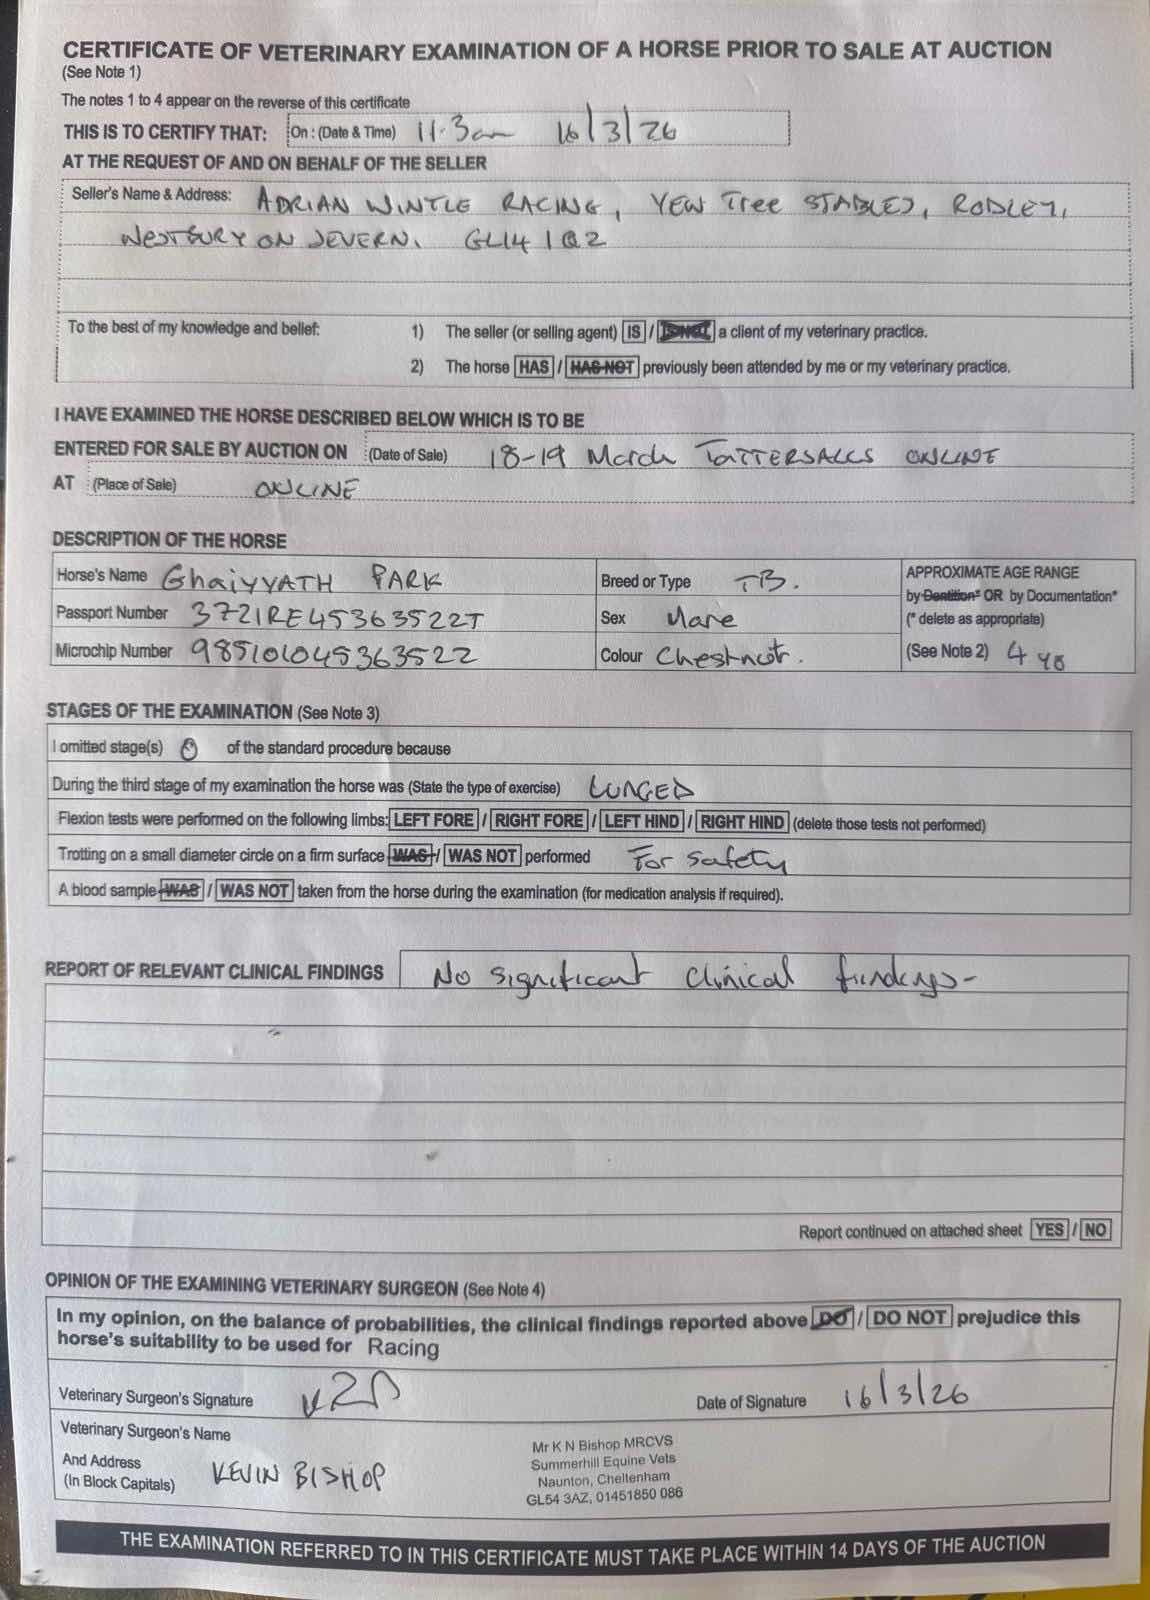 CERTIFICATE OF VETERINARY EXAMINATION OF A HORSE PRIOR TO SALE AT AUCTION
(See Note 1)
The notes 1 to 4 appear on the reverse of this certificate
THIS IS TO CERTIFY THAT: On : (Date & Time) 11.3am 16/3/26
AT THE REQUEST OF AND ON BEHALF OF THE SELLER
Seller's Name & Address: ADRIAN WINTLE RACING, YEW Tree STABLES, RODLEY,
WESTBURY ON SEVERN. GL14 1QZ
To the best of my knowledge and belief: 1) The seller (or selling agent) IS / IS NOT a client of my veterinary practice.
2) The horse HAS / HAS NOT previously been attended by me or my veterinary practice.
I HAVE EXAMINED THE HORSE DESCRIBED BELOW WHICH IS TO BE
ENTERED FOR SALE BY AUCTION ON (Date of Sale) 18-19 March TATTERSALLS ONLINE
AT (Place of Sale) ONLINE
DESCRIPTION OF THE HORSE
Horse's Name GhaiyyATH PARK Breed or Type TB. APPROXIMATE AGE RANGE
by Dentition* OR by Documentation*
Passport Number 372IRE45363522T Sex Mare (* delete as appropriate)
Microchip Number 985101045363522 Colour Chestnut. (See Note 2) 4 yo
STAGES OF THE EXAMINATION (See Note 3)
I omitted stage(s) 0 of the standard procedure because
During the third stage of my examination the horse was (State the type of exercise) LUNGED
Flexion tests were performed on the following limbs: LEFT FORE / RIGHT FORE / LEFT HIND / RIGHT HIND (delete those tests not performed)
Trotting on a small diameter circle on a firm surface WAS / WAS NOT performed For safety
A blood sample WAS / WAS NOT taken from the horse during the examination (for medication analysis if required).
REPORT OF RELEVANT CLINICAL FINDINGS No significant clinical findings-
Report continued on attached sheet YES / NO
OPINION OF THE EXAMINING VETERINARY SURGEON (See Note 4)
In my opinion, on the balance of probabilities, the clinical findings reported above DO / DO NOT prejudice this
horse's suitability to be used for Racing
Veterinary Surgeon's Signature Date of Signature 16/3/26
Veterinary Surgeon's Name
And Address
(In Block Capitals) KEVIN BISHOP
Mr K N Bishop MRCVS
Summerhill Equine Vets
Naunton, Cheltenham
GL54 3AZ, 01451850 086
THE EXAMINATION REFERRED TO IN THIS CERTIFICATE MUST TAKE PLACE WITHIN 14 DAYS OF THE AUCTION